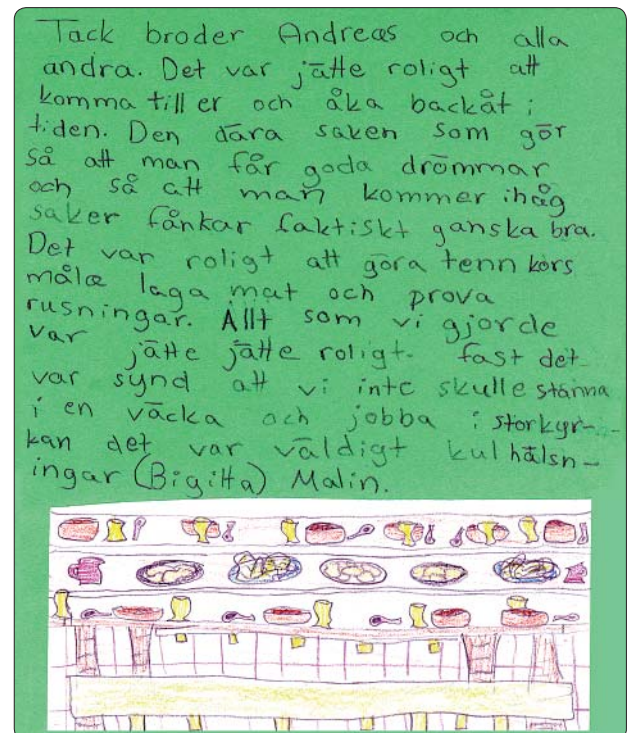 Tack broder Andreas och alla
andra. Det var jätte roligt att
komma till er och åka backåt i
tiden. Den dära saken som gör
så att man får goda drömmar
och så att man kommer ihåg
saker fånkar faktiskt ganska bra.
Det var roligt att göra tenn kors
måla laga mat och prova
rusningar. Allt som vi gjorde
var jätte jätte roligt. fast det
var synd att vi inte skulle stanna
i en väcka och jobba i storkyr-
kan det var väldigt kul hälsn-
ingar (Bigitta) Malin.